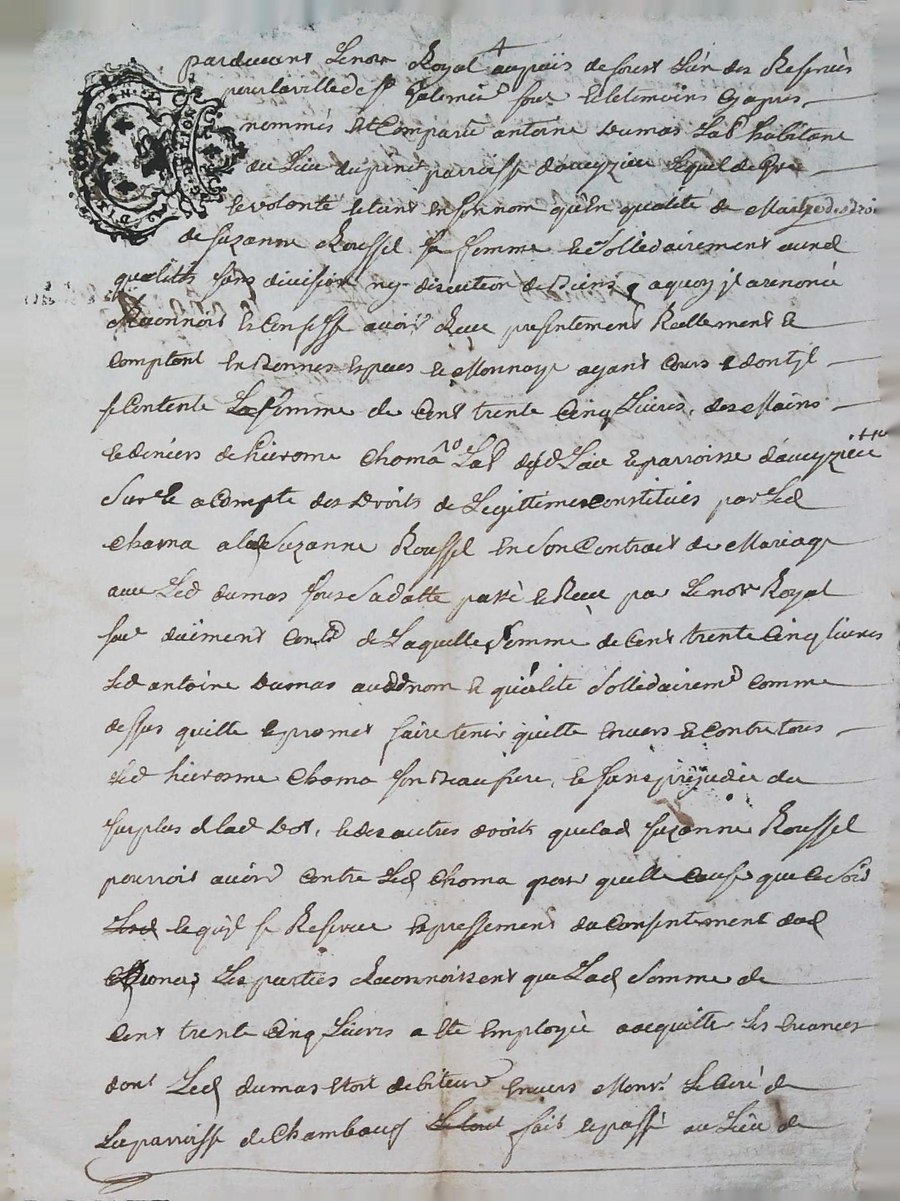 pardevant Lenore Royal au païs de forest L'un des Reservés
pour la ville de st galmier sous et les temoins cy apres
nommés est Comparu antoine Dumas Lab habitant
du Lieu du pinet parroisse daveyzieu Lequel de gré
et volonté et tant en son nom qu'en qualité de Maitre des droi
de Suzanne Roussel sa femme et sollidairement aux d
qualités sans division ny discution de Biens a quoy jl a renoncé
Reconnoit et Confesse avoir Receu presentement Reellement et
Comptant en Bonnes Especes et Monnoye ayant Cours dont jl
se Contente La somme de Cent trente Cinq Livres, des Mains
et deniers de hierome Choma Lab dud Lieu et parroisse daveyzieu
Sur et a Compte des Droits de Legittime constitués par Led
Choma a lad Suzanne Roussel en son Contrat de Mariage
avec Led dumas sous sa datte passé et Receu par Lenore Royal
sous. düement Con.lé de Laquelle Somme de Cent trente Cinq livres
Led antoine Dumas aud nom et qualité sollidairemt comme
dessus quitte et promet faire tenir quitte envers et contre tous
Led hierosme Choma son Beaufrere, et sans prejudice du
surplus de lad Dot, et des autres droits que lad Suzanne Roussel
pourroit avoir Contre Led Choma pour quelle Cause que Ce soit
et qu'jl se Reserve Expressement du Consentement dud
Choma; Les parties Reconnoissent que Lad Somme de
Cent trente Cinq Livres a eté Employée a acquitter les
dont Led dumas etoit debiteur Envers Monsr Le Curé de
La parroisse de Chambœuf Le tout fait et passé au Lieu de